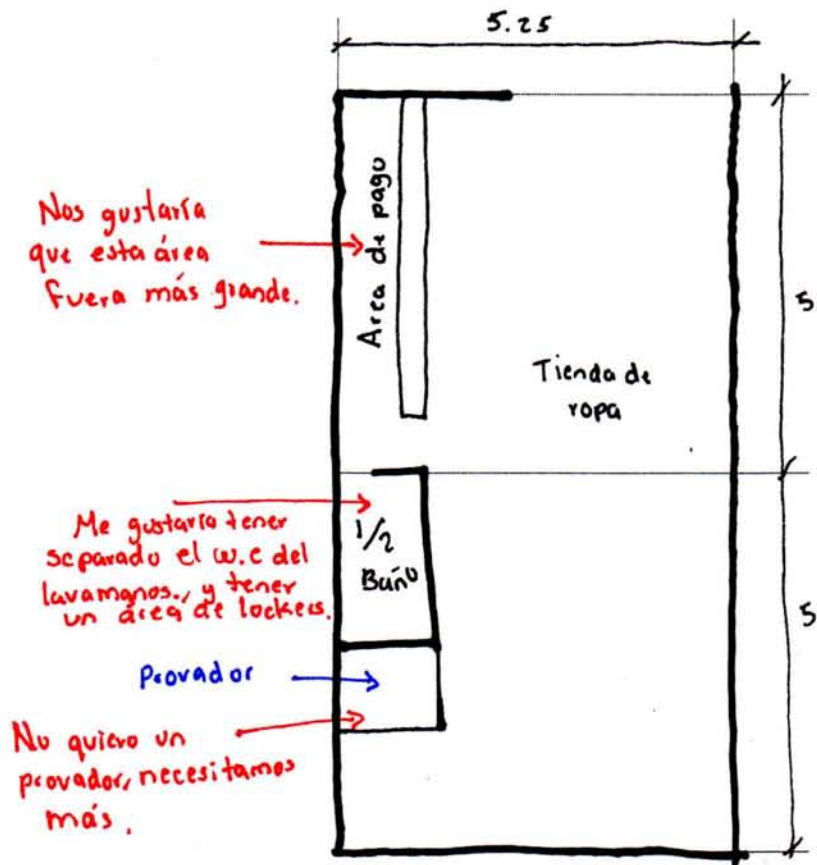 5.25
Nos gustaría
que esta área
fuera más grande.
Area de pago
5
Tienda de
ropa
Me gustaría tener
separado el w.c del
lavamanos., y tener
un área de lockers.
1/2
Baño
5
Provador
No quiero un
provador, necesitamos
más.